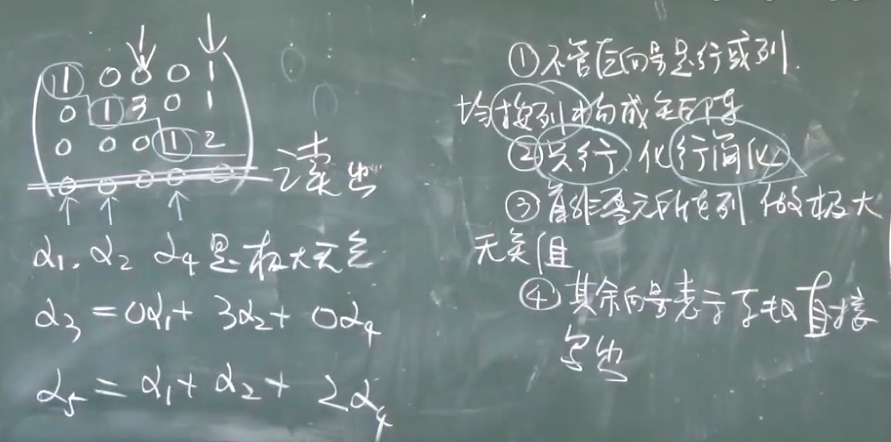 1 0 0 0 1
0 1 3 0 1
0 0 0 1 2
0 0 0 0 0
读出
α₁, α₂ α₄ 是极大无关
α₃ = 0α₁ + 3α₂ + 0α₄
α₅ = α₁ + α₂ + 2α₄
①不管原向量是行或列.
均按列构成矩阵
②只行,化行简化
③首非零元所在列做极大
无关组
④其余向量表示系数直接
写出